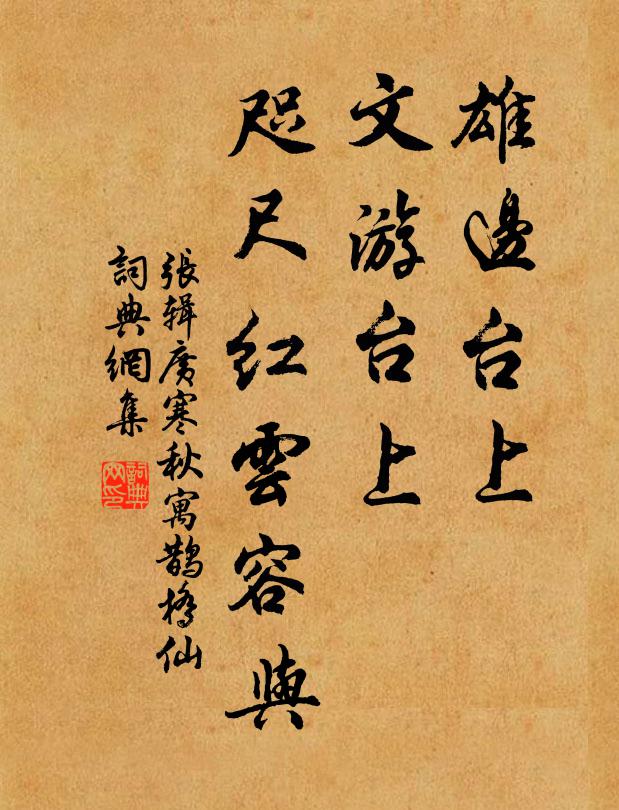 雄邊台上
文游台上
咫尺紅雲容與
張辑廣寒秋寓鵲橋仙
詞典網集
詞典網印